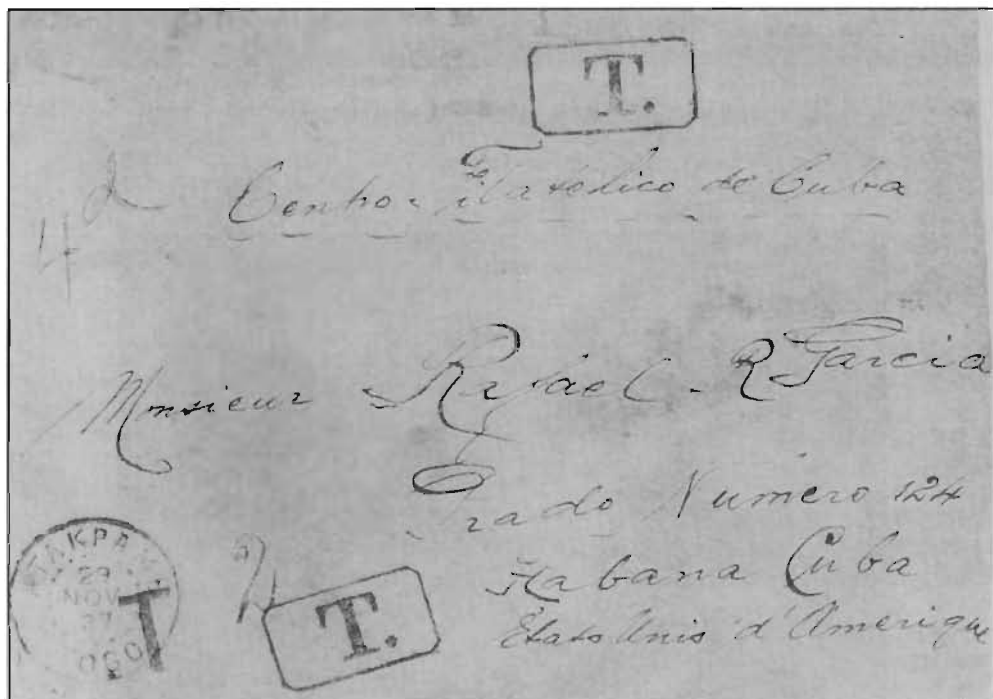 T.
Centro Filatelico de Cuba
4
Monsieur Rafael R Garcia
Prado Numero 124
Habana Cuba
Etats Unis d'Amerique
ATAKPAME
29
NOV
27
T
T.